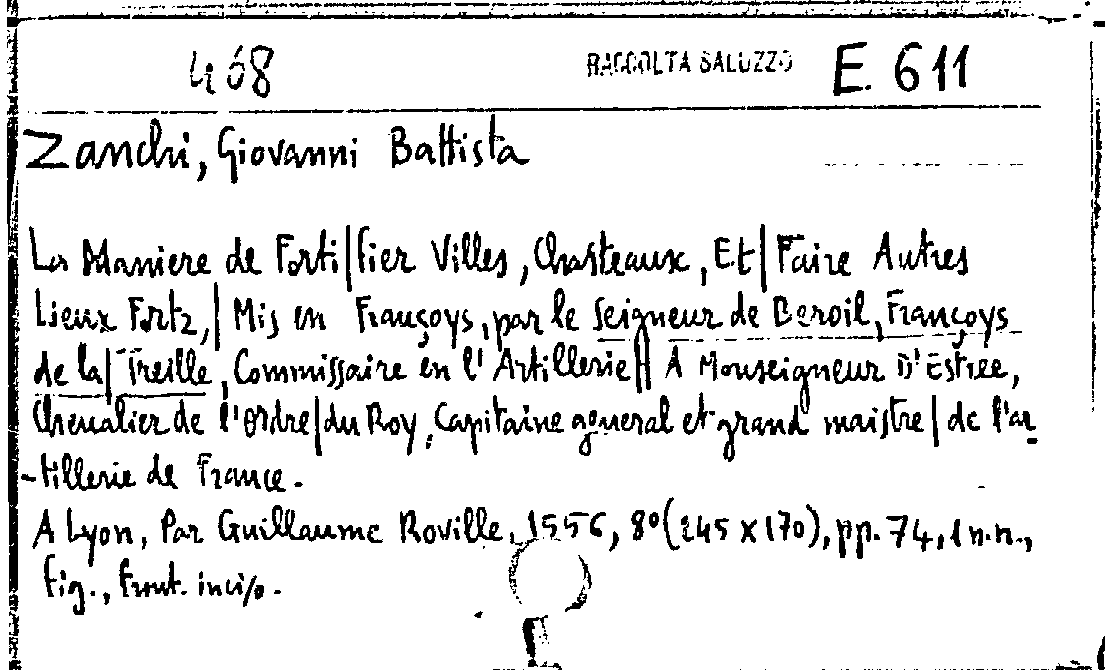 468 RACCOLTA SALUZZO E. 611
Zanchi, Giovanni Battista
La Maniere de Forti|fier Villes, Chasteaux, Et| Faire Autres
Lieux Fortz,| Mis en Françoys, par le Seigneur de Beroil, Françoys
de la| Treille, Commissaire en l'Artillerie|| A Monseigneur D'Estree,
Chevalier de l'Ordre| du Roy, Capitaine general et grand maistre| de l'ar-
-tillerie de France.
A Lyon, Par Guillaume Roville, 1556, 8° (245 x 170), pp. 74, 1 n.n.,
fig., front. inciso.